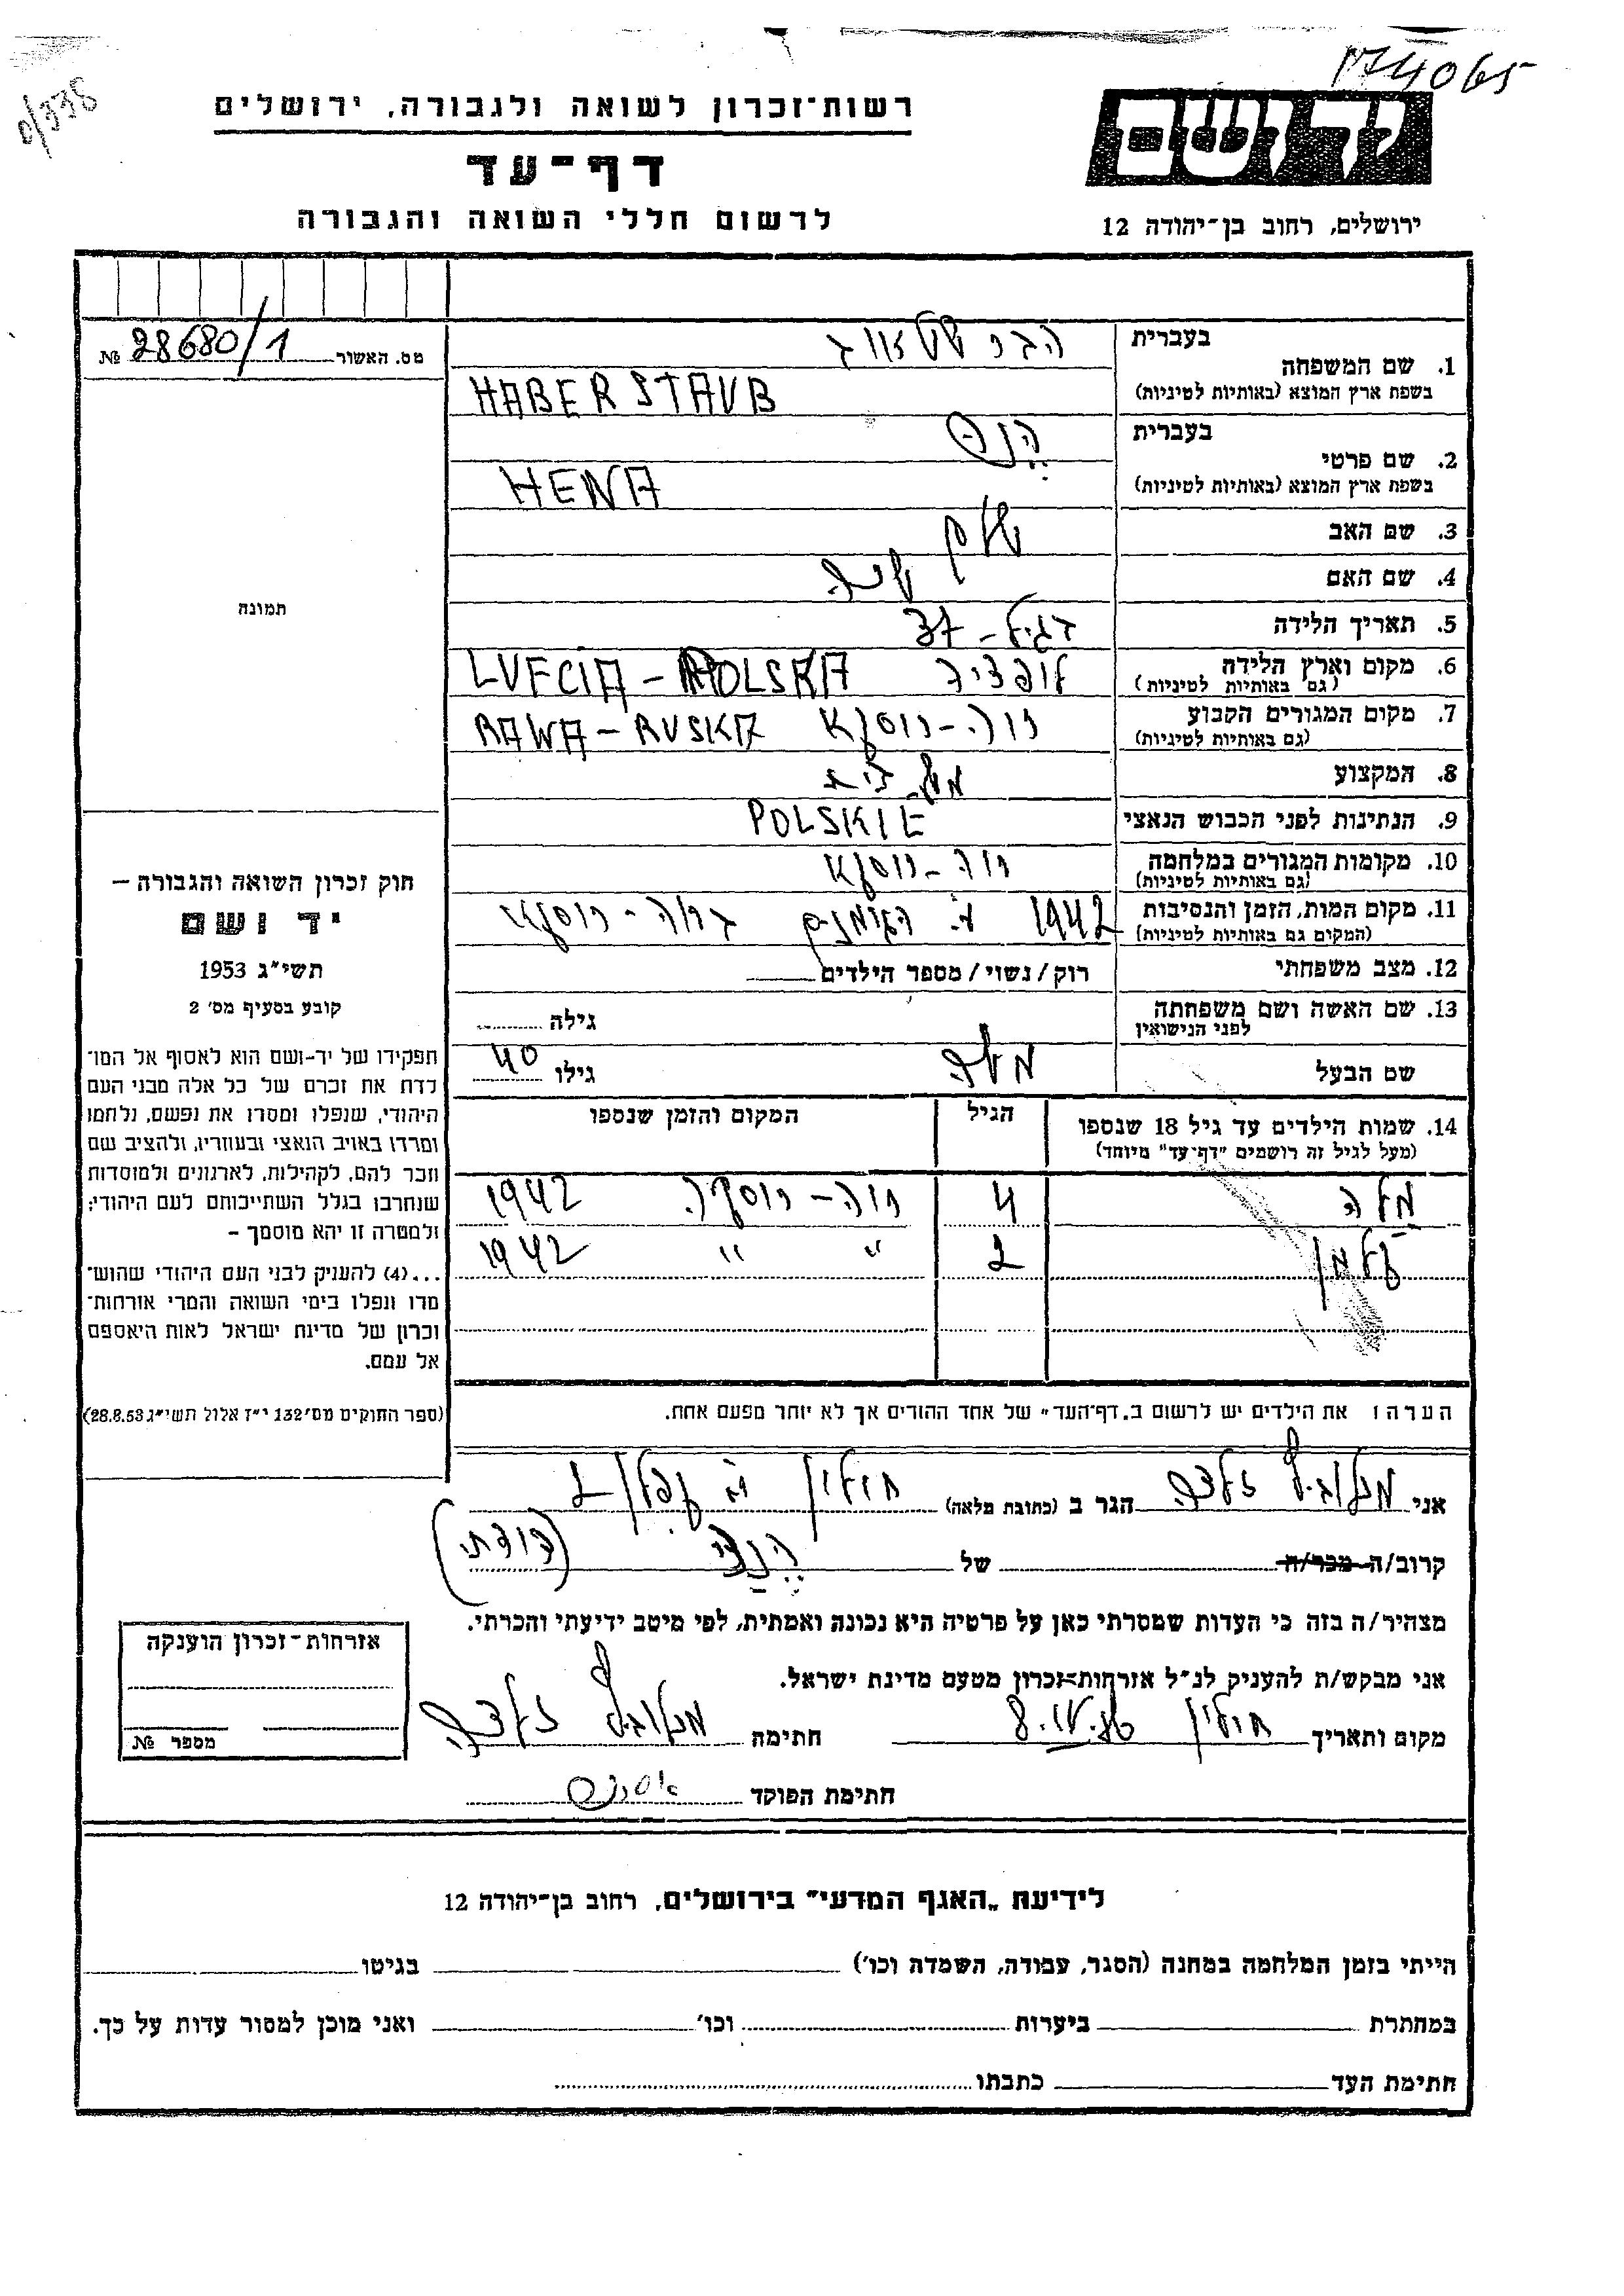 174065
רשות־זכרון לשואה ולגבורה, ירושלים
דף־עד
לרשום חללי השואה והגבורה
יד ושם
ירושלים, רחוב בן־יהודה 12
מס. האשור № 28680/1
1. שם המשפחה
בעברית הברשטאוב
בשפת ארץ המוצא (באותיות לטיניות) HABERSTAUB
2. שם פרטי
בעברית הנה
בשפת ארץ המוצא (באותיות לטיניות) HENA
3. שם האב
4. שם האם
5. תאריך הלידה בגיל - 37
6. מקום וארץ הלידה
(גם באותיות לטיניות) LUFCIA - POLSKA
7. מקום המגורים הקבוע רוה-רוסקא RAWA - RUSKA
(גם באותיות לטיניות)
8. המקצוע
9. הנתינות לפני הכבוש הנאצי POLSKIE
10. מקומות המגורים במלחמה רוה-רוסקא
(גם באותיות לטיניות)
11. מקום המות, הזמן והנסיבות 1942 ברוה-רוסקא
(המקום גם באותיות לטיניות)
12. מצב משפחתי רוק/נשוי/מספר הילדים
13. שם האשה ושם משפחתה
לפני הנישואין
גילה
שם הבעל משה גילו 40
14. שמות הילדים עד גיל 18 שנספו
(מעל לגיל זה רושמים "דף־עד" מיוחד)
הגיל
המקום והזמן שנספו
מלה 4 רוה-רוסקה 1942
קלמן 2 " " " 1942
הערה: את הילדים יש לרשום ב„דף־העד" של אחד ההורים אך לא יותר מפעם אחת.
תמונה
חוק זכרון השואה והגבורה –
יד ושם
תשי"ג 1953
קובע בסעיף מס' 2
תפקידו של יד־ושם הוא לאסוף אל המו־
לדת את זכרם של כל אלה מבני העם
היהודי, שנפלו ומסרו את נפשם, נלחמו
ומרדו באויב הנאצי ובעוזריו, ולהציב שם
וזכר להם, לקהילות, לארגונים ולמוסדות
שנחרבו בגלל השתייכותם לעם היהודי;
ולמטרה זו יהא מוסמך –
...(4) להעניק לבני העם היהודי שהוש־
מדו ונפלו בימי השואה והמרי אזרחות־
זכרון של מדינת ישראל לאות היאספם
אל עמם.
(ספר החוקים מס' 132 י"ז אלול תשי"ג 28.8.53)
אני הגר ב (כתובת מלאה) חולון
קרוב/ה מכר/ה של (דודתי)
מצהיר/ה בזה כי העדות שמסרתי כאן על פרטיה היא נכונה ואמתית, לפי מיטב ידיעתי והכרתי.
אני מבקש/ת להעניק לנ"ל אזרחות־זכרון מטעם מדינת ישראל.
מקום ותאריך חולון חתימה
חתימת הפוקד
אזרחות־זכרון הוענקה
מספר №
לידיעת „האגף המדעי" בירושלים, רחוב בן־יהודה 12
הייתי בזמן המלחמה במחנה (הסגר, עבודה, השמדה וכו') בגיטו
במחתרת ביערות וכו' ואני מוכן למסור עדות על כך.
חתימת העד כתבתו